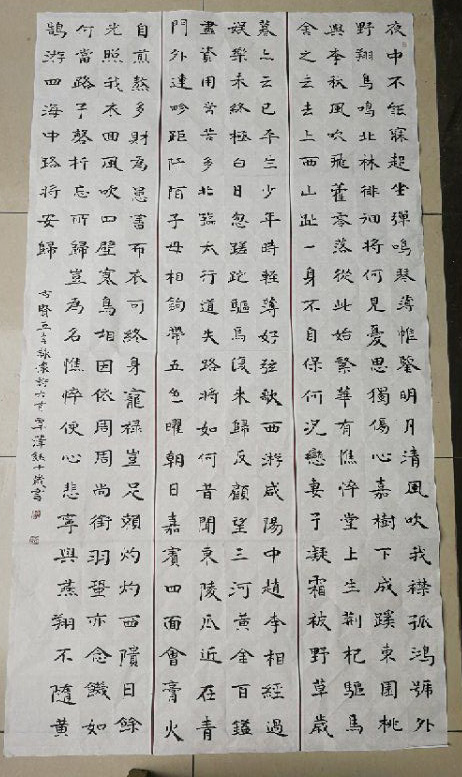 夜中不能寐起坐彈鳴琴薄帷鑒明月清風吹我襟孤鴻號外
野翔鳥鳴北林徘徊將何見憂思獨傷心嘉樹下成蹊東園桃
與李秋風吹飛藿零落從此始繁華有憔悴堂上生荊杞驅馬
舍之去去上西山趾一身不自保何況戀妻子凝霜被野草歲
暮亦云已平生少年時輕薄好弦歌西游咸陽中趙李相經過
娛樂未終極白日忽蹉跎驅馬復來歸反顧望三河黃金百鎰
盡資用常苦多北臨太行道失路將如何昔聞東陵瓜近在青
門外連畛距阡陌子母相鉤帶五色曜朝日嘉賓四面會膏火
自煎熬多財為患害布衣可終身寵祿豈足賴灼灼西隤日餘
光照我衣回風吹四壁寒鳥相因依周周尚銜羽蛩亦念饑如
何當路子磬折忘所歸豈為名憔悴使心悲寧與燕翔不隨黃
鵠游四海中路將安歸
十歲書